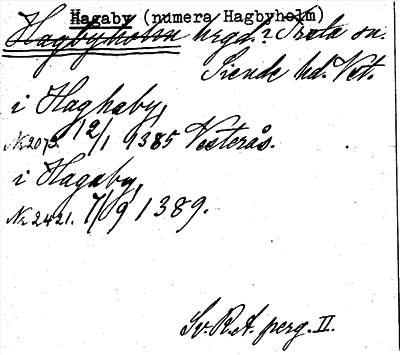 Hagaby (numera Hagbyholm)
Hagbyholm hrgd. i Irsta sn.
Siende hd. Vstm.
i Haghaby,
Nr 2073. 12/1 1385 Vesterås.
i Hagaby,
Nr 2421. 7/9 1389.
Sv. R. A. perg. II.